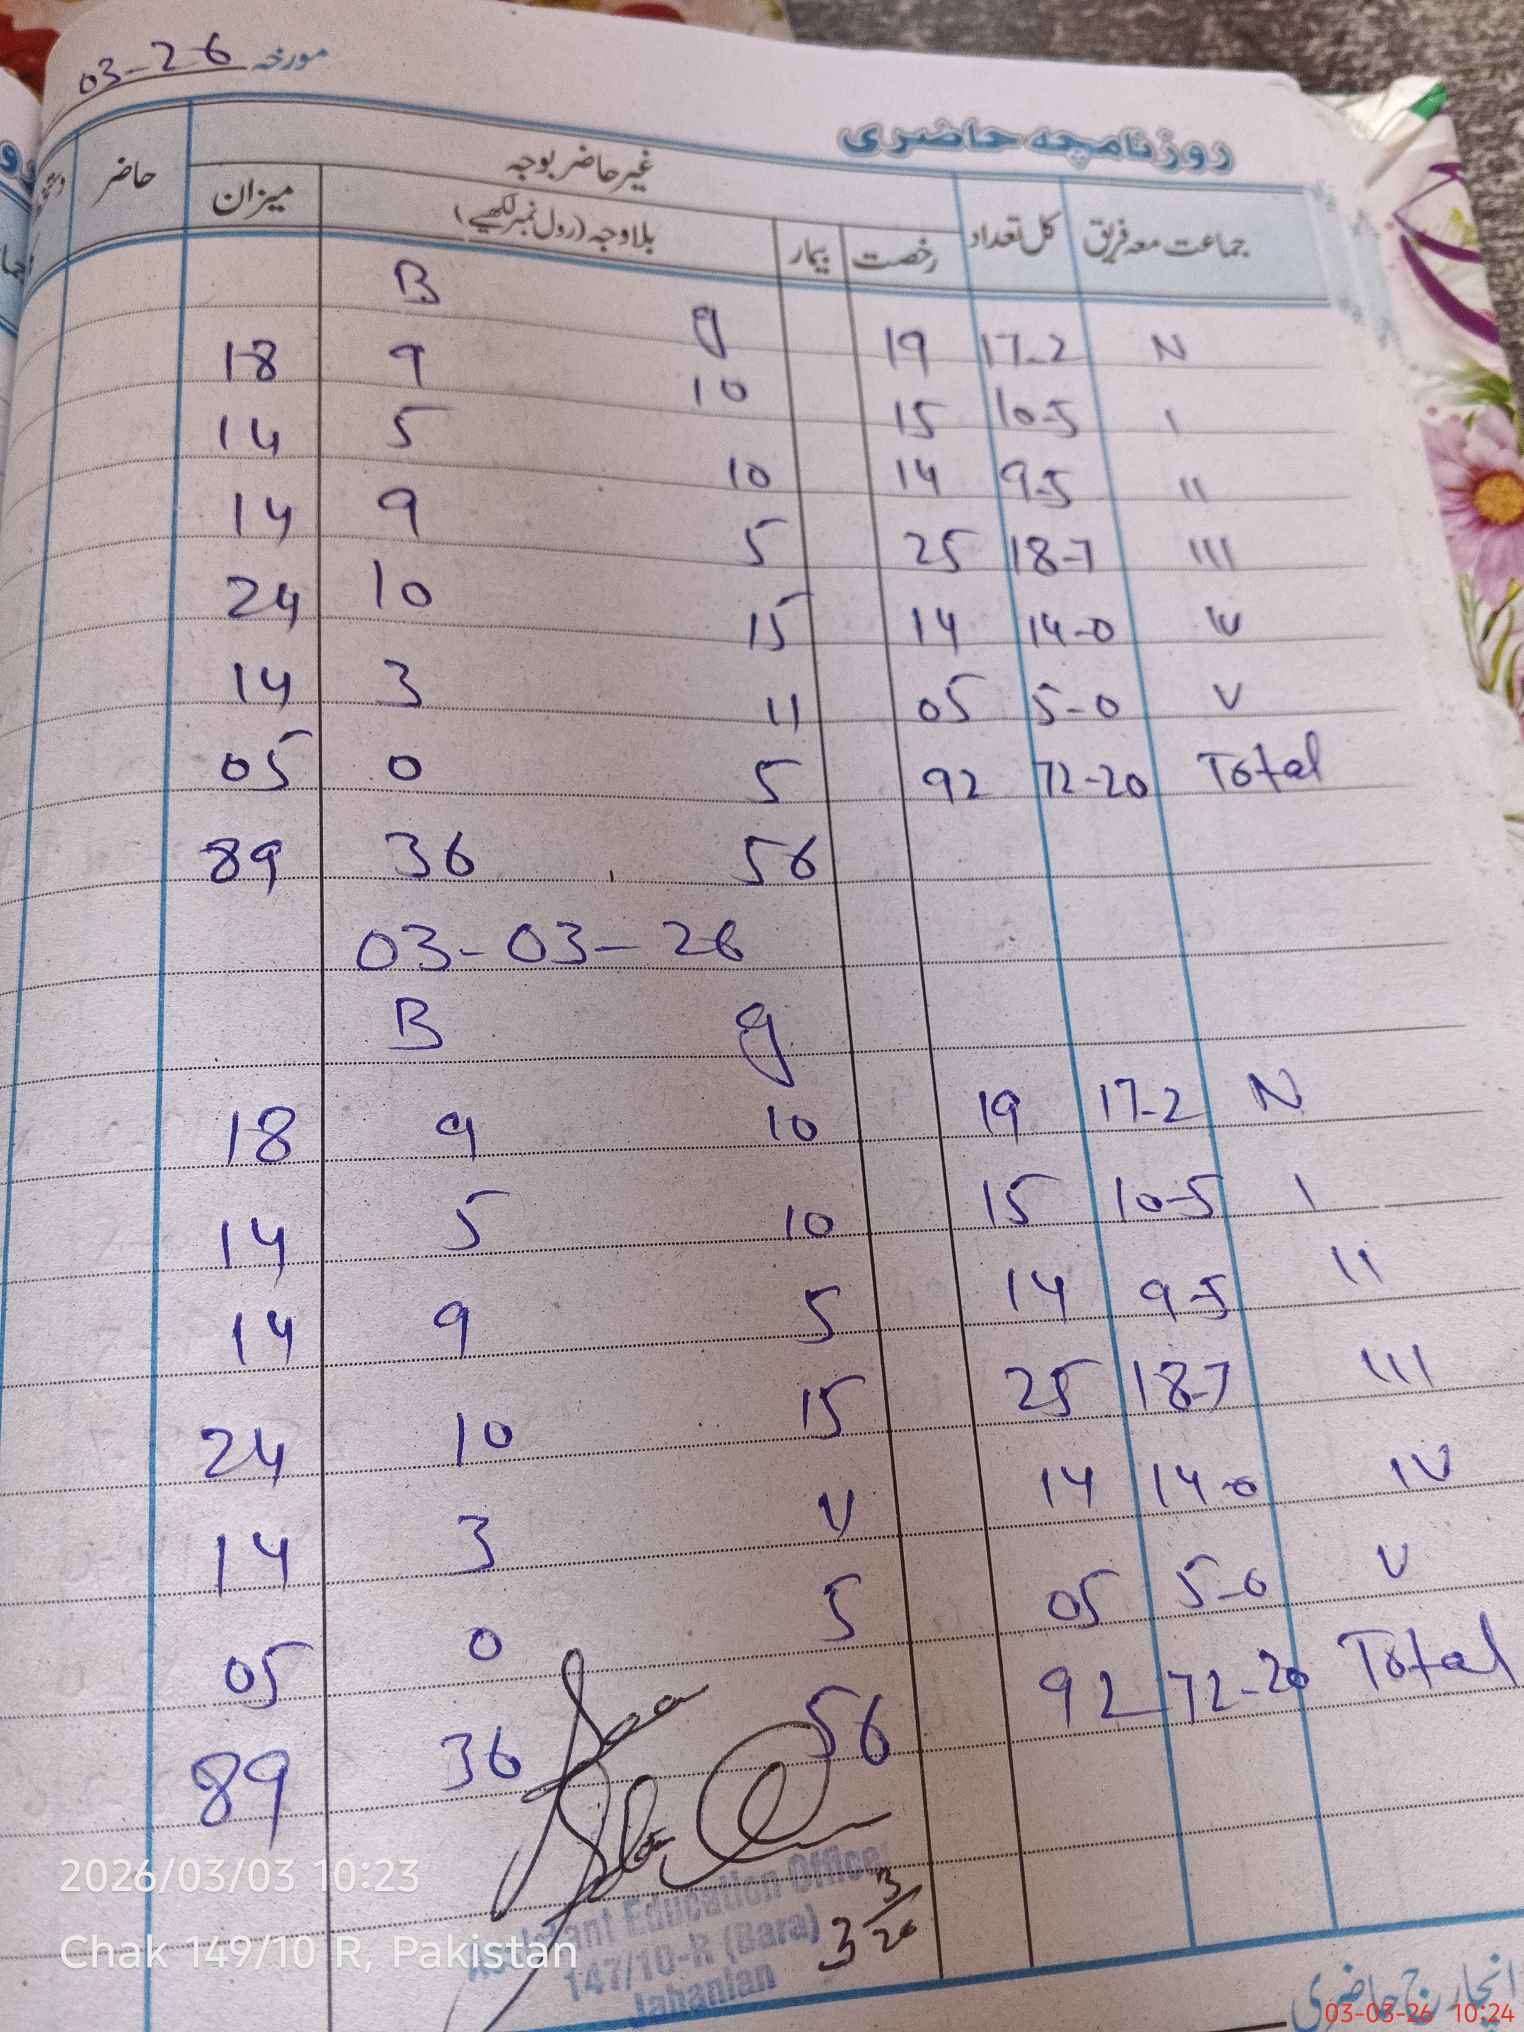 مورخہ 03-2-6
روزنامچہ حاضری
جماعت معہ فریق کل تعداد غیر حاضر بوجہ میزان حاضر
رخصت بیمار بلاوجہ (رول نمبر لکھیے)
B g
18 9 10 19 17-2 N
14 5 10 15 10-5 I
14 9 5 14 9-5 II
24 10 15 25 18-7 III
14 3 11 14 14-0 IV
05 0 5 05 5-0 V
89 36 56 92 72-20 Total
03-03-26
B g
18 9 10 19 17-2 N
14 5 10 15 10-5 I
14 9 5 14 9-5 II
24 10 15 25 18-7 III
14 3 11 14 14-0 IV
05 0 5 05 5-0 V
89 36 56 92 72-20 Total
Assistant Education Officer
147/10-R (Bara)
Jahanian
3 3/26
2026/03/03 10:23
Chak 149/10 R, Pakistan
انچارج حاضری
03-03-26 10:24